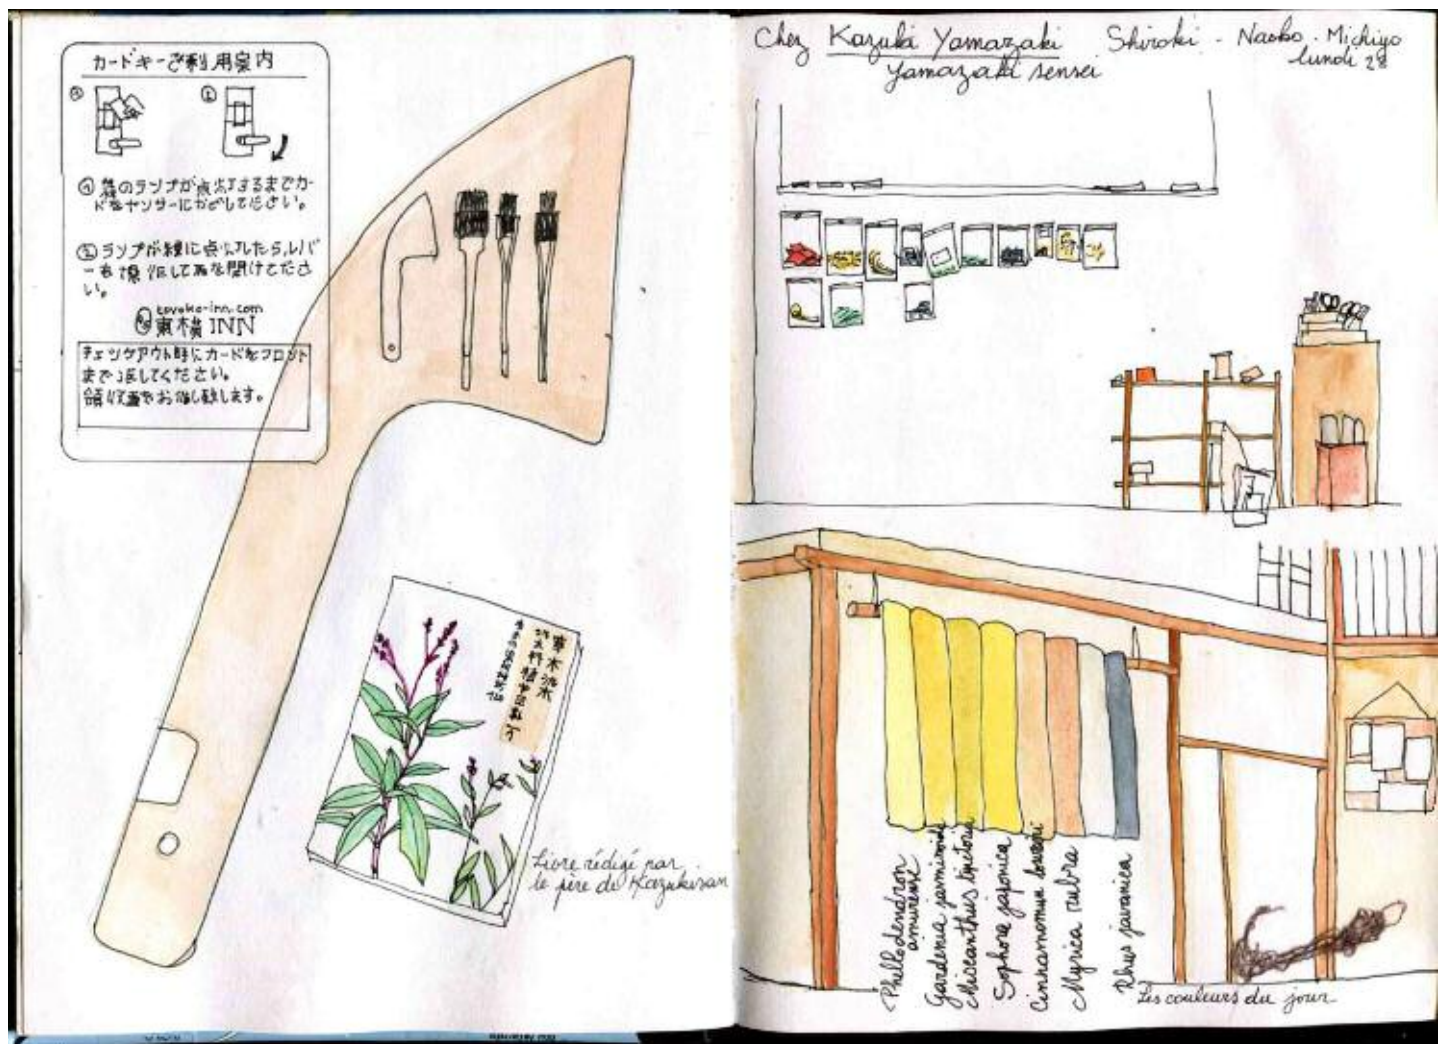 カードキーご利用案内
① ②
① のランプが点灯するまでカー
ドをセンサーにかざしてください。
② ランプが緑に点灯したら、レバ
ーを操作して を開けてくださ
い。
toyoko-inn.com
東横 INN
チェックアウト時にカードをフロント
まで返してください。
領収書をお渡し致します。
Livre rédigé par
le père de Kazukisan
Chez Kazuki Yamazaki Shiroki - Naoko - Michiyo
Yamazaki sensei lundi 28
Phellodendron
amurense
Gardenia jasminoides
Miscanthus tinctorius
Sophora japonica
Cinnamomum
Myrica rubra
Rhus javanica
Les couleurs du jour